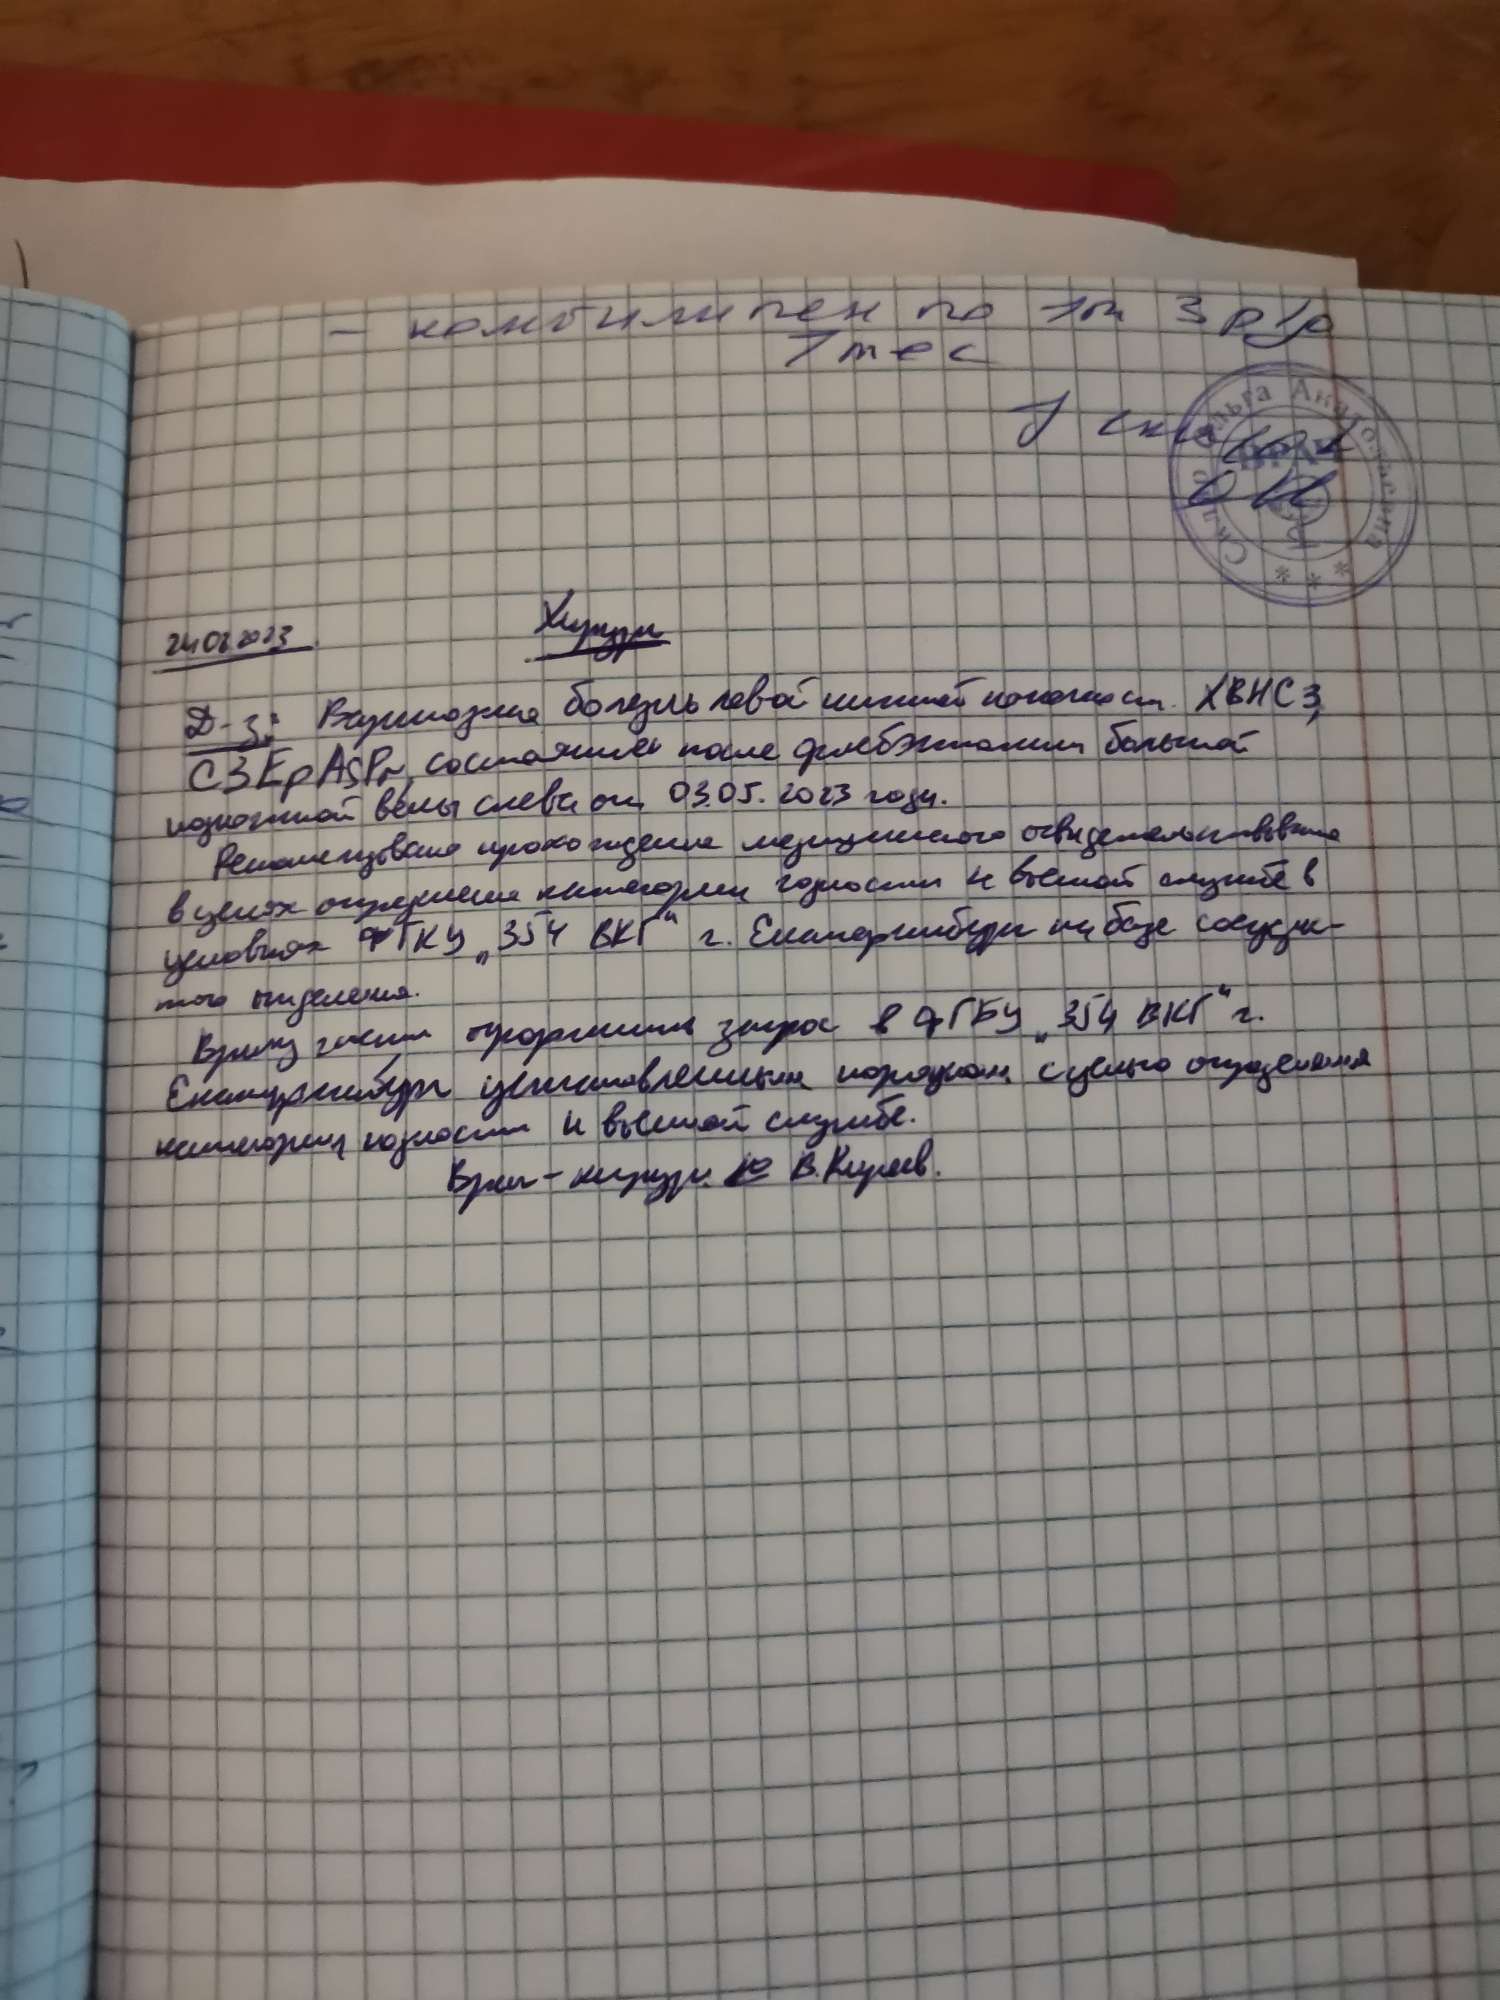 - комбилипен по 1т 3 р/д
1 мес
Ольга Анатольевна
ВРАЧ
24.08.2023
Хирург
Д-з: Варикозная болезнь левой нижней конечности. ХВН С3,
C3EpASPr, состояние после флебэктомии большой
подкожной вены слева от 03.05.2023 года.
Рекомендовано прохождение медицинского освидетельствования
в целях определения категории годности к военной службе в
условиях ФГКУ „354 ВКГ“ г. Екатеринбург на базе сосудис-
того отделения.
Врачу части оформить запрос в ФГБУ „354 ВКГ“ г.
Екатеринбург установленным порядком с целью определения
категории годности к военной службе.
Врач-хирург В. Киреев.